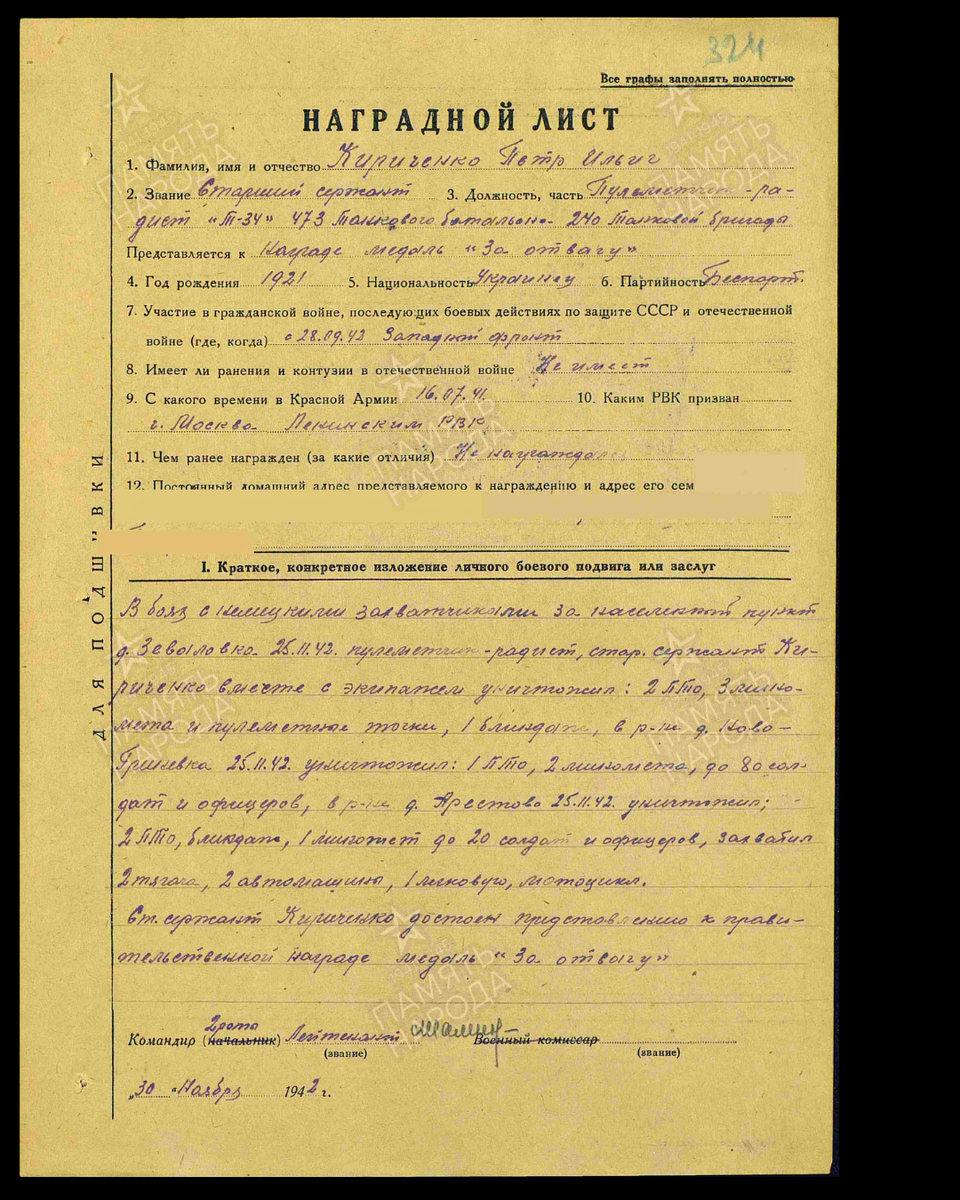 324
Все графы заполнять полностью
НАГРАДНОЙ ЛИСТ
1. Фамилия, имя и отчество Кириченко Петр Ильич
2. Звание Старший сержант 3. Должность, часть Пулеметчик-ра-
дист "Т-34" 473 танкового батальона 240 танковой бригады
Представляется к награде медаль "За отвагу"
4. Год рождения 1921 5. Национальность Украинец 6. Партийность Беспарт.
7. Участие в гражданской войне, последующих боевых действиях по защите СССР и отечественной
войне (где, когда) с 28.09.42 Западный фронт
8. Имеет ли ранения и контузии в отечественной войне Не имеет
9. С какого времени в Красной Армии 16.07.41. 10. Каким РВК призван
г. Москва Ленинским РВК
11. Чем ранее награжден (за какие отличия) Не награждался
12. Постоянный домашний адрес представляемого к награждению и адрес его сем
ДЛЯ ПОДШИВКИ
I. Краткое, конкретное изложение личного боевого подвига или заслуг
В боях с немецкими захватчиками за населенный пункт
д. 25.11.42. пулеметчик-радист, стар. сержант Ки-
риченко вместе с экипажем уничтожил: 2 ПТО, 3 мино-
мета и пулеметные точки, 1 блиндаж, в р-не д. Ново-
Гриневка 25.11.42. уничтожил: 1 ПТО, 2 миномета, до 80 сол-
дат и офицеров, в р-не д. Арестово 25.11.42. уничтожил;
2 ПТО, блиндаж, 1 миномет до 20 солдат и офицеров, захватил
2 тягача, 2 автомашины, 1 легковую, мотоцикл.
Ст. сержант Кириченко достоен представлению к прави-
тельственной награде медаль "За отвагу"
2 роты
Командир (начальник) Лейтенант Военный комиссар
(звание) (звание)
"30" Ноября 1942 г.
ПАМЯТЬ НАРОДА